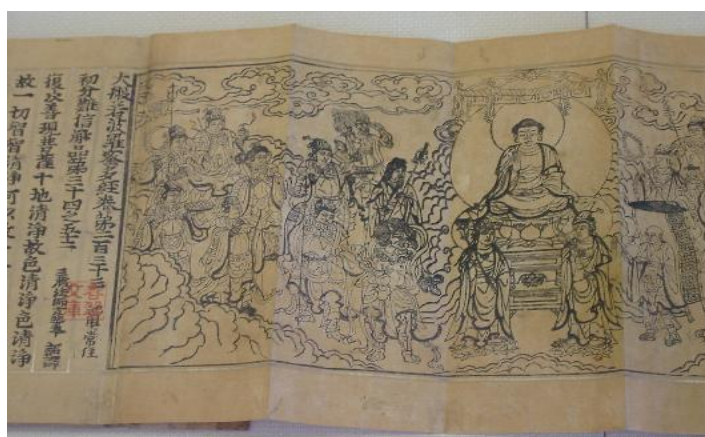 大般若波羅蜜多經卷第二百三十三
初分難信解品第三十四之五十二
常住
三藏法師玄奘奉 詔譯
復次善現菩薩十地清淨故色清淨色清淨
故一切智智清淨何以故
文庫